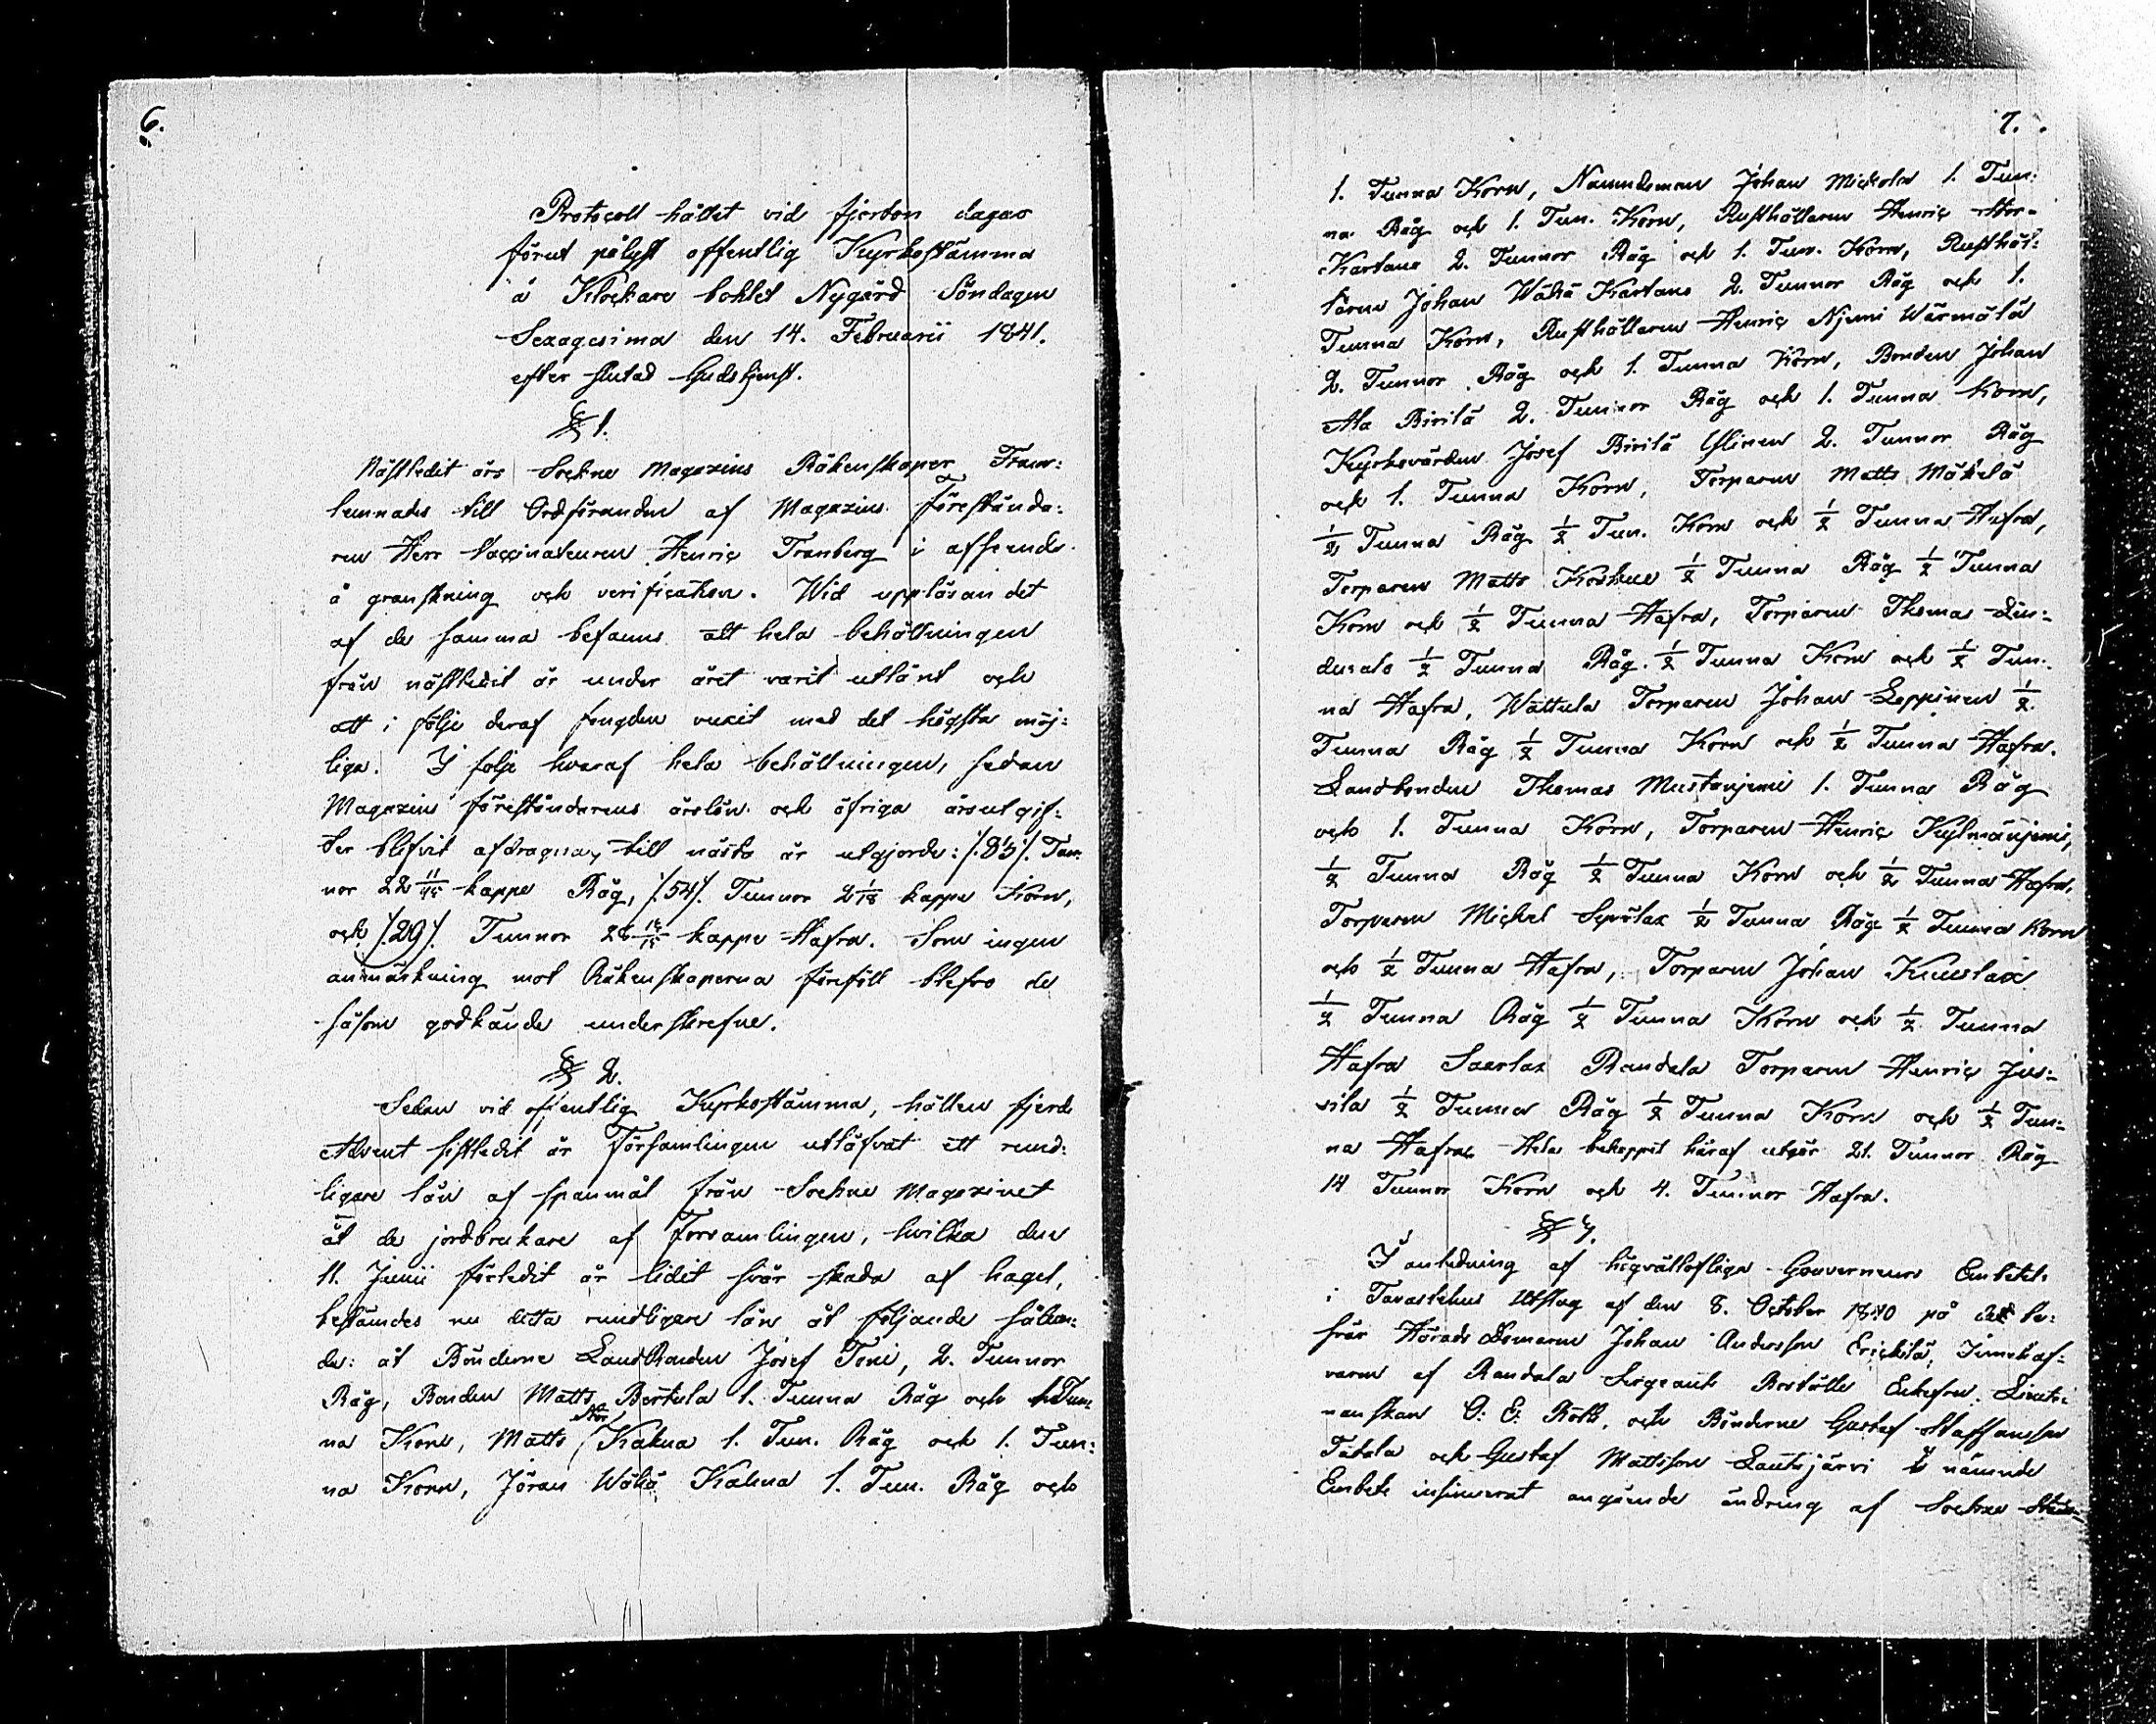 6.
Protocoll hållit vid fjorton dagar
förut pålyst offentlig Kyrkostämma
å Klockare bohlet Nygård Söndagen
Sexagesima den 14. Februarii 1841.
efter slutad Gudstjenst.
§ 1.
Nästledit års Sockne Magazins Räkenskaper Fram:
lemnades till Ordföranden af Magazins Föreståndaren
ren Herr Vaccinateuren Henric Tranberg i afseende
å granskning och verification. Wid uppläsandet
af de samma befanns att hela behållningen
från nästledit år under året varit utlånt och
att i följe deraf fongden vuxit med det högsta möj:
liga. I följe hvaraf hela behållningen, sedan
Magazins föreståndarens årslön och öfriga årsutgif:
ter blifvit afdragna, till nästa år utgjorde: /.83/. Tun:
nor 22 11/45 kappe Råg, /.54/. Tunnor 2 1/18 kappe Korn,
och /.29/. Tunnor kappe Hafra. Som ingen
anmärkning mot Räkenskaperna föreföll blefvo de
såsom godkände underskrefne.
§ 2.
Sedan vid offentlig Kyrkostämma, hållen fjerde
Advent sistledit år Församlingen utlåfvat ett rund:
ligare lån af spanmål från Sockne Magazinet
åt de jordbrukare af Forsamlingen, hvilka den
11. Junii förledit år lidit svår skada af hagel,
bestämdes nu detta rundligare lån åt följande sålun:
de: åt Bönderne LandBonden Josef Toni, 2. Tunnor
Råg, Bonden Matts Bertula 1. Tunna Råg och 1. Tun:
na Korn, Matts Stor Kakna 1. Tun. Råg och 1. Tun:
na Korn, Jöran Wähä Kakna 1. Tun. Råg och
7.
1. Tunna Korn, Nämndeman Johan Mickola 1. Tun:
na Råg och 1. Tun. Korn, Rusthållaren Henric Stor-
Kartano 2. Tunnor Råg och 1. Tun. Korn, Rusthål:
laren Johan Wähä Kartano 2. Tunnor Råg och 1.
Tunna Korn, Rusthållaren Henric Njemi Wärmälä
2. Tunnor Råg och 1. Tunna Korn, Bonden Johan
Ala Birilä 2. Tunnor Råg och 1. Tunna Korn,
Kyrkovärden Josef Birilä Ylinen 2. Tunnor Råg
och 1. Tunna Korn, Torparen Matts Mäkelä
1/2 Tunna Råg 1/2 Tun. Korn och 1/2 Tunna Hafra,
Torparen Matts Koskue 1/2 Tunna Råg 1/2 Tunna
Korn och 1/2 Tunna Hafra, Torparen Thomas Lin:
dusalo 1/2 Tunna Råg 1/2 Tunna Korn och 1/2 Tun:
na Hafra, Wattula Torparen Johan Leppinen 1/2
Tunna Råg 1/2 Tunna Korn och 1/2 Tunna Hafra.
Landbonden Thomas Mustanjemi 1. Tunna Råg
och 1. Tunna Korn, Torparen Henric Kylmänjemi,
1/2 Tunna Råg 1/2 Tunna Korn och 1/2 Tunna Hafra,
Torparen Michel Sepälax 1/2 Tunna Råg 1/2 Tunna Korn
och 1/2 Tunna Hafra, Torparen Johan Kuuslax
1/2 Tunna Råg 1/2 Tunna Korn och 1/2 Tunna
Hafra Saarlax Randala Torparen Henric Jus:
sila 1/2 Tunna Råg 1/2 Tunna Korn och 1/2 Tun:
na Hafra. Hela beloppet häraf utgör 21. Tunnor Råg
14 Tunnor Korn och 4. Tunnor Hafra.
§
I anledning af högvällofliga Gouverneurs Embetets
i Tavastehus Utslag af den 8. October 1840 på de be:
svär Härads Domaren Johan Andersson Erickilä, Innehaf:
varen af Randala Sergeants Boställe Enkefru Lieute:
nanskan O: E: Roth, och Bönderne Gustaf Staffansson
Tätala och Gustaf Mattsson Lautjärvi nämnde
Embete insinuerat angående ändring af Sockne Stäm: